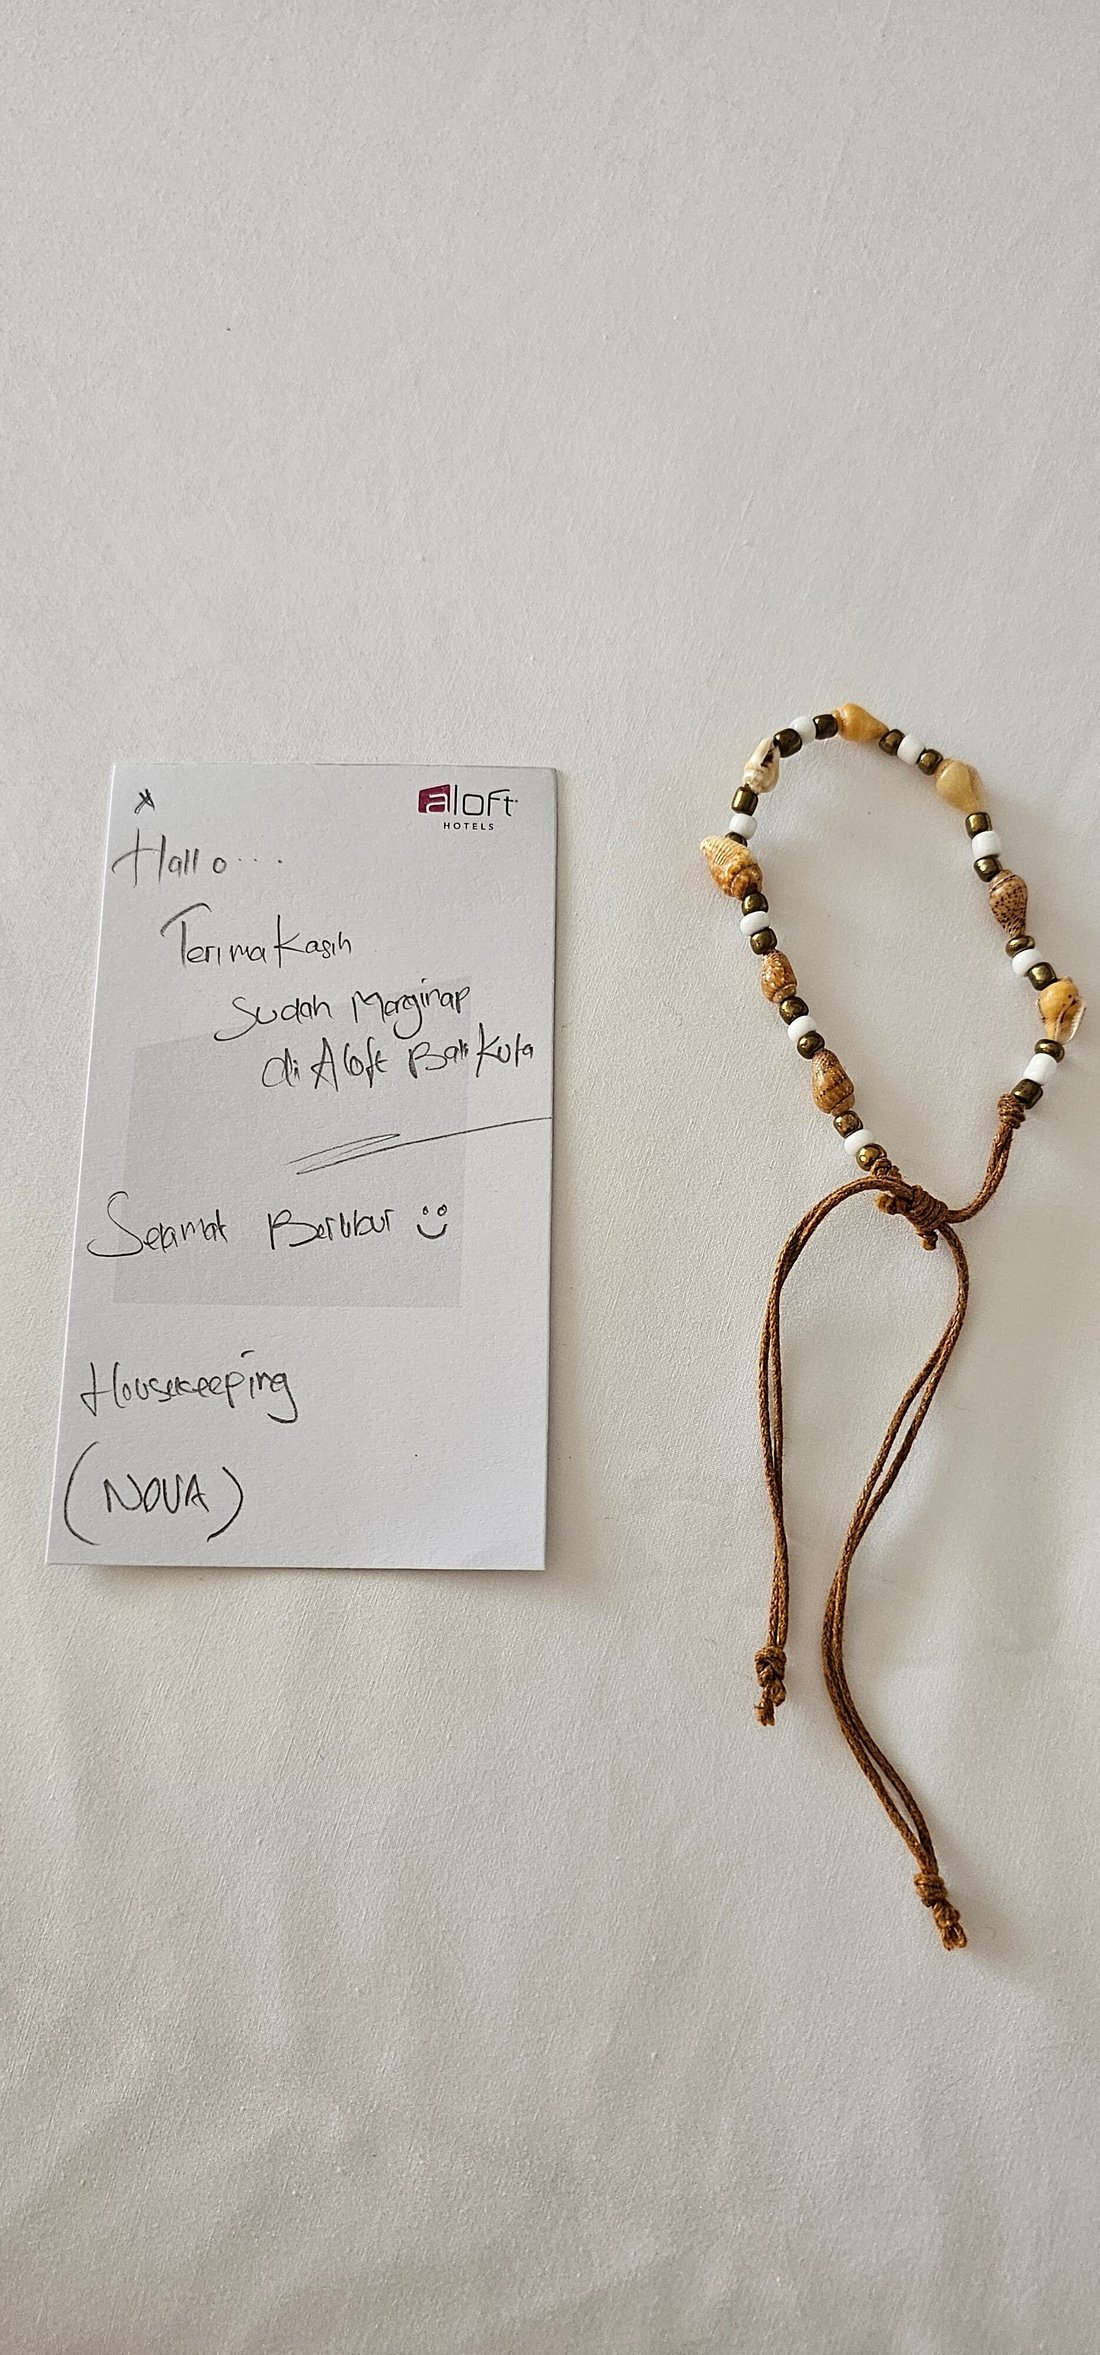 aloft
HOTELS
Hallo...
Terima kasih
sudah Menginap
di Aloft Bali Kuta
Selamat Berlibur
Housekeeping
(NOVA)